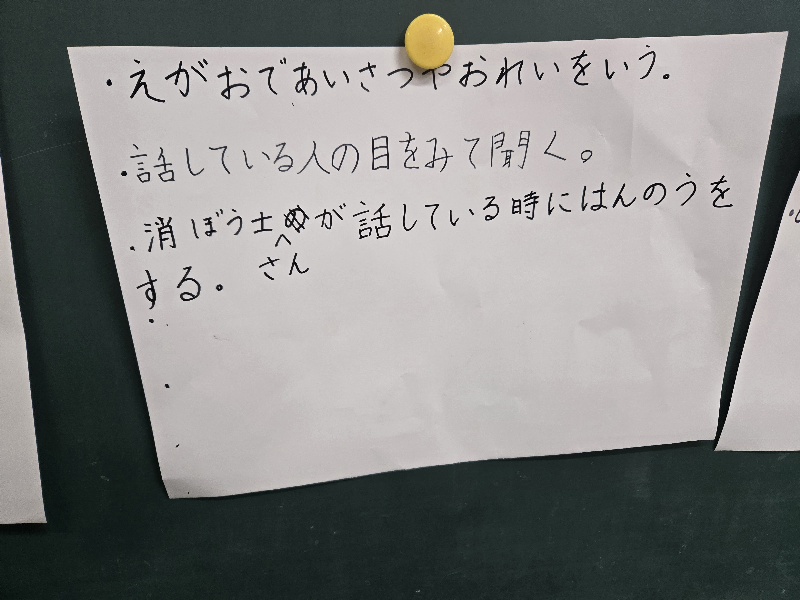 ・えがおであいさつやおれいをいう。
・話している人の目をみて聞く。
・消ぼう士さんが話している時にはんのうを
する。
・
・
・